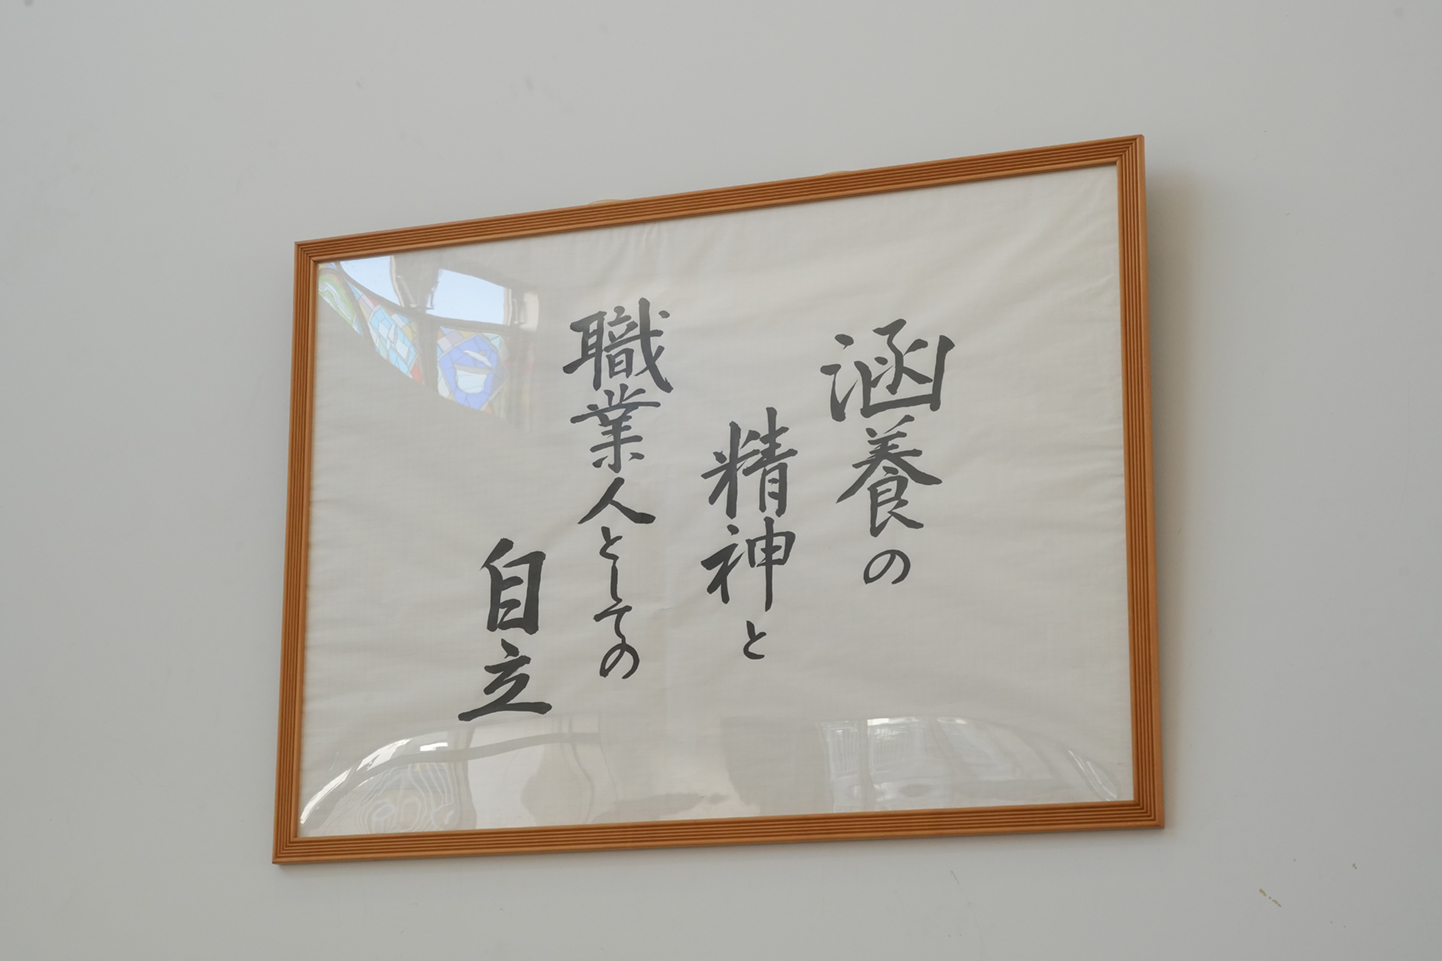 涵養の
精神と
職業人としての
自立